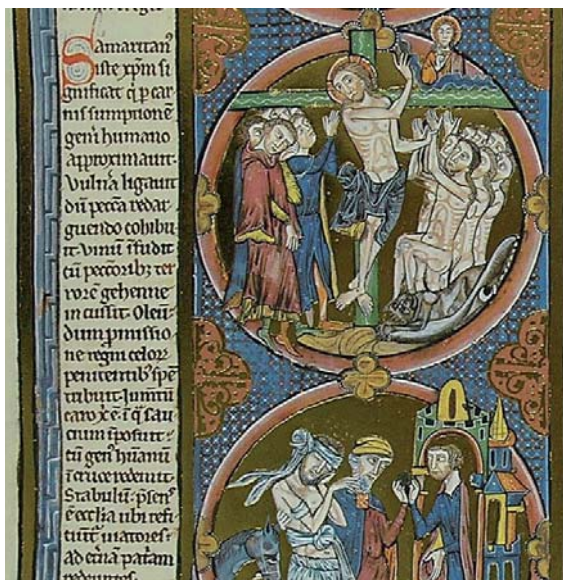 Samaritanꝰ
iste xpm si
gnificat q̇ ꝑ car
nis sumptionē
geñi humano
approximauit.
Vulñā ligauit
dū pecc̄a redar
guendo cohibu
it. vinū īfudit
cū peccoribꝫ ter
rorē gehenne
incussit. Oleū
dum ꝓmissio
ne regni celoꝝ
penitentibꝰ spē
tribuit. Jumtū
caro xp̄i ē ī q̇ sau
cium īposuit.
cū genꝰ hūanū
ī cruce redemit
Stabulū. p̄senſ
ē eccl̄ia ubi refi
ciūt᷑ uiatores.
ad et̄nā patriam
redeuntes